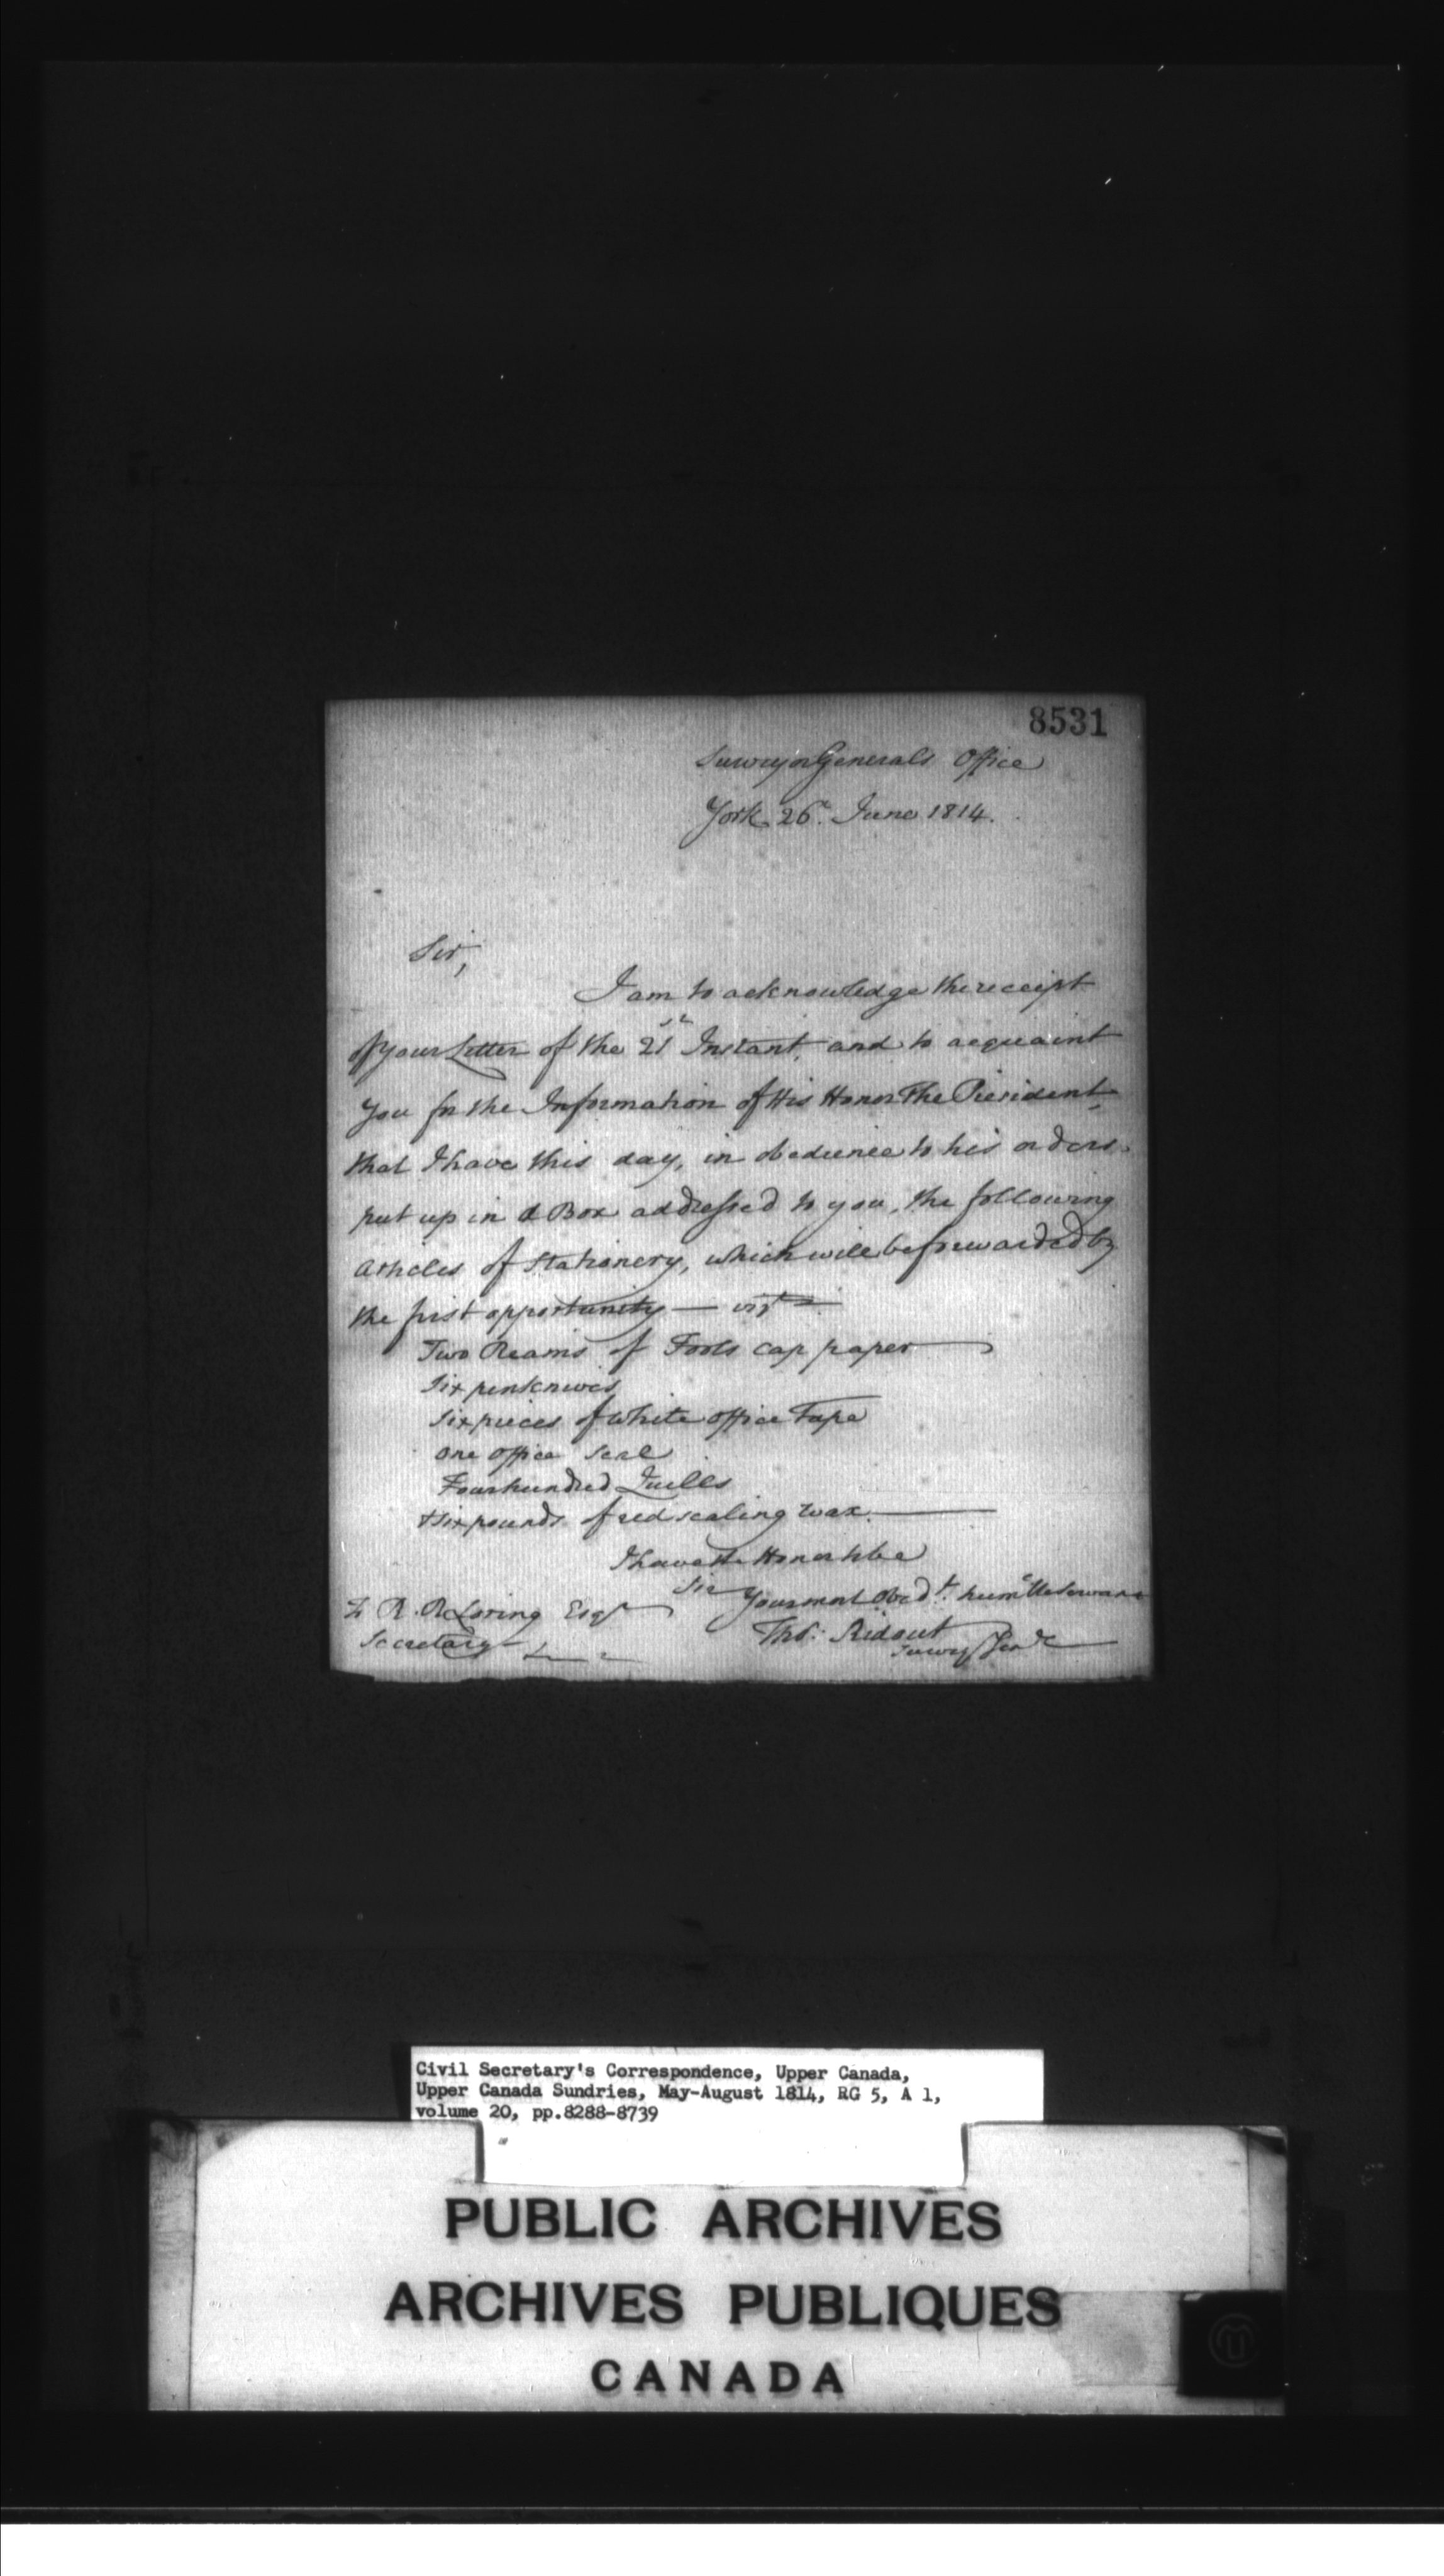 8531
Surveyor Generals Office
York 26th. June 1814.
Sir,
I am to acknowledge the receipt
of your Letter of the 21st Instant, and to acquaint
you for the Information of His Honor The President
that I have this day, in obedience to his orders
put up in a Box addressed to you, the following
articles of Stationery, which will be forwarded by
the first opportunity — vizt
Two Reams of Fools cap paper
Six penknives
Six pieces of white office Tape
one office seal
Four hundred Quills
& Six pounds of red sealing wax.
I have the Honor to be
Sir Your most Obedt. humble Servant
Thos: Ridout
Survr Genl
R. R. Loring Esqr
Secretary
Civil Secretary's Correspondence, Upper Canada,
Upper Canada Sundries, May-August 1814, RG 5, A 1,
volume 20, pp.8288-8739
PUBLIC ARCHIVES
ARCHIVES PUBLIQUES
CANADA